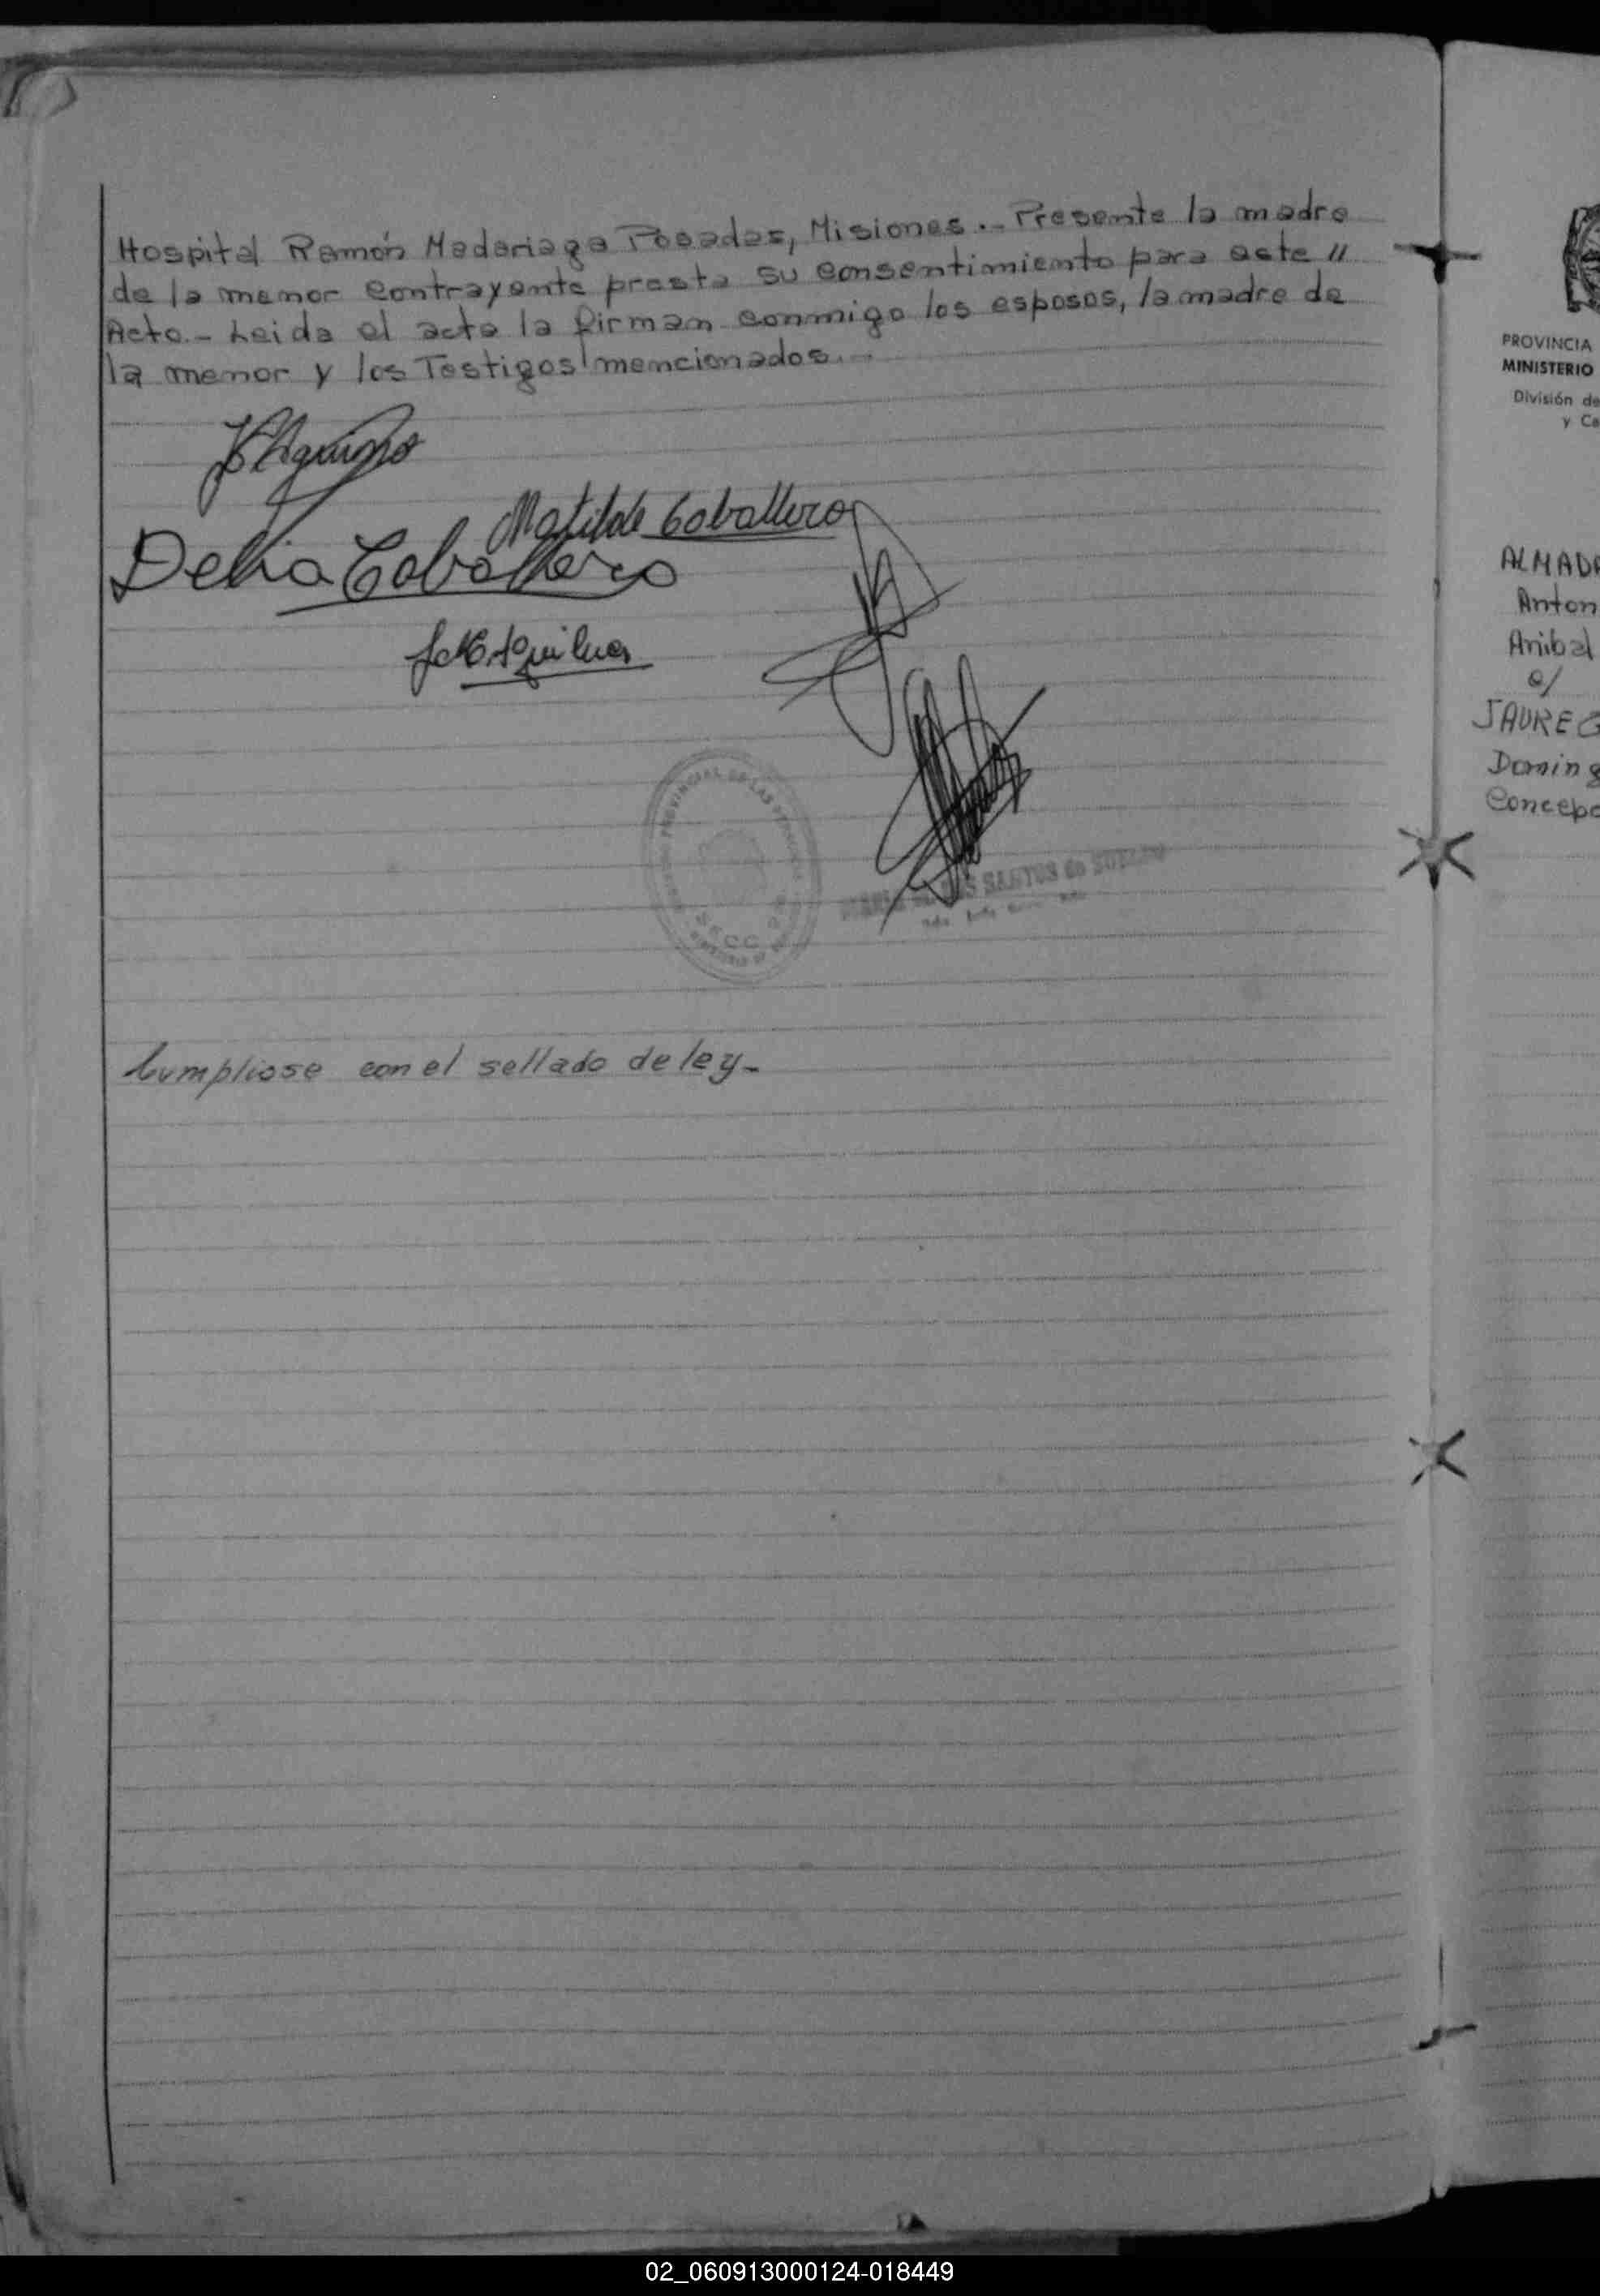 Hospital Ramón Madariaga Posadas, Misiones.- Presente la madre
de la menor contrayente presta su consentimiento para este //
Acto.- Leida el acta la firman conmigo los esposos, la madre de
la menor y los Testigos mencionados.-
Matilde Caballero
Delia Caballero
SANTOS de
Cumpliose con el sellado de ley-
PROVINCIA
MINISTERIO
División de
y Ca
ALMADA
Anton
Anibal
c/
JAUREG
Doming
Concepc
02_060913000124-018449